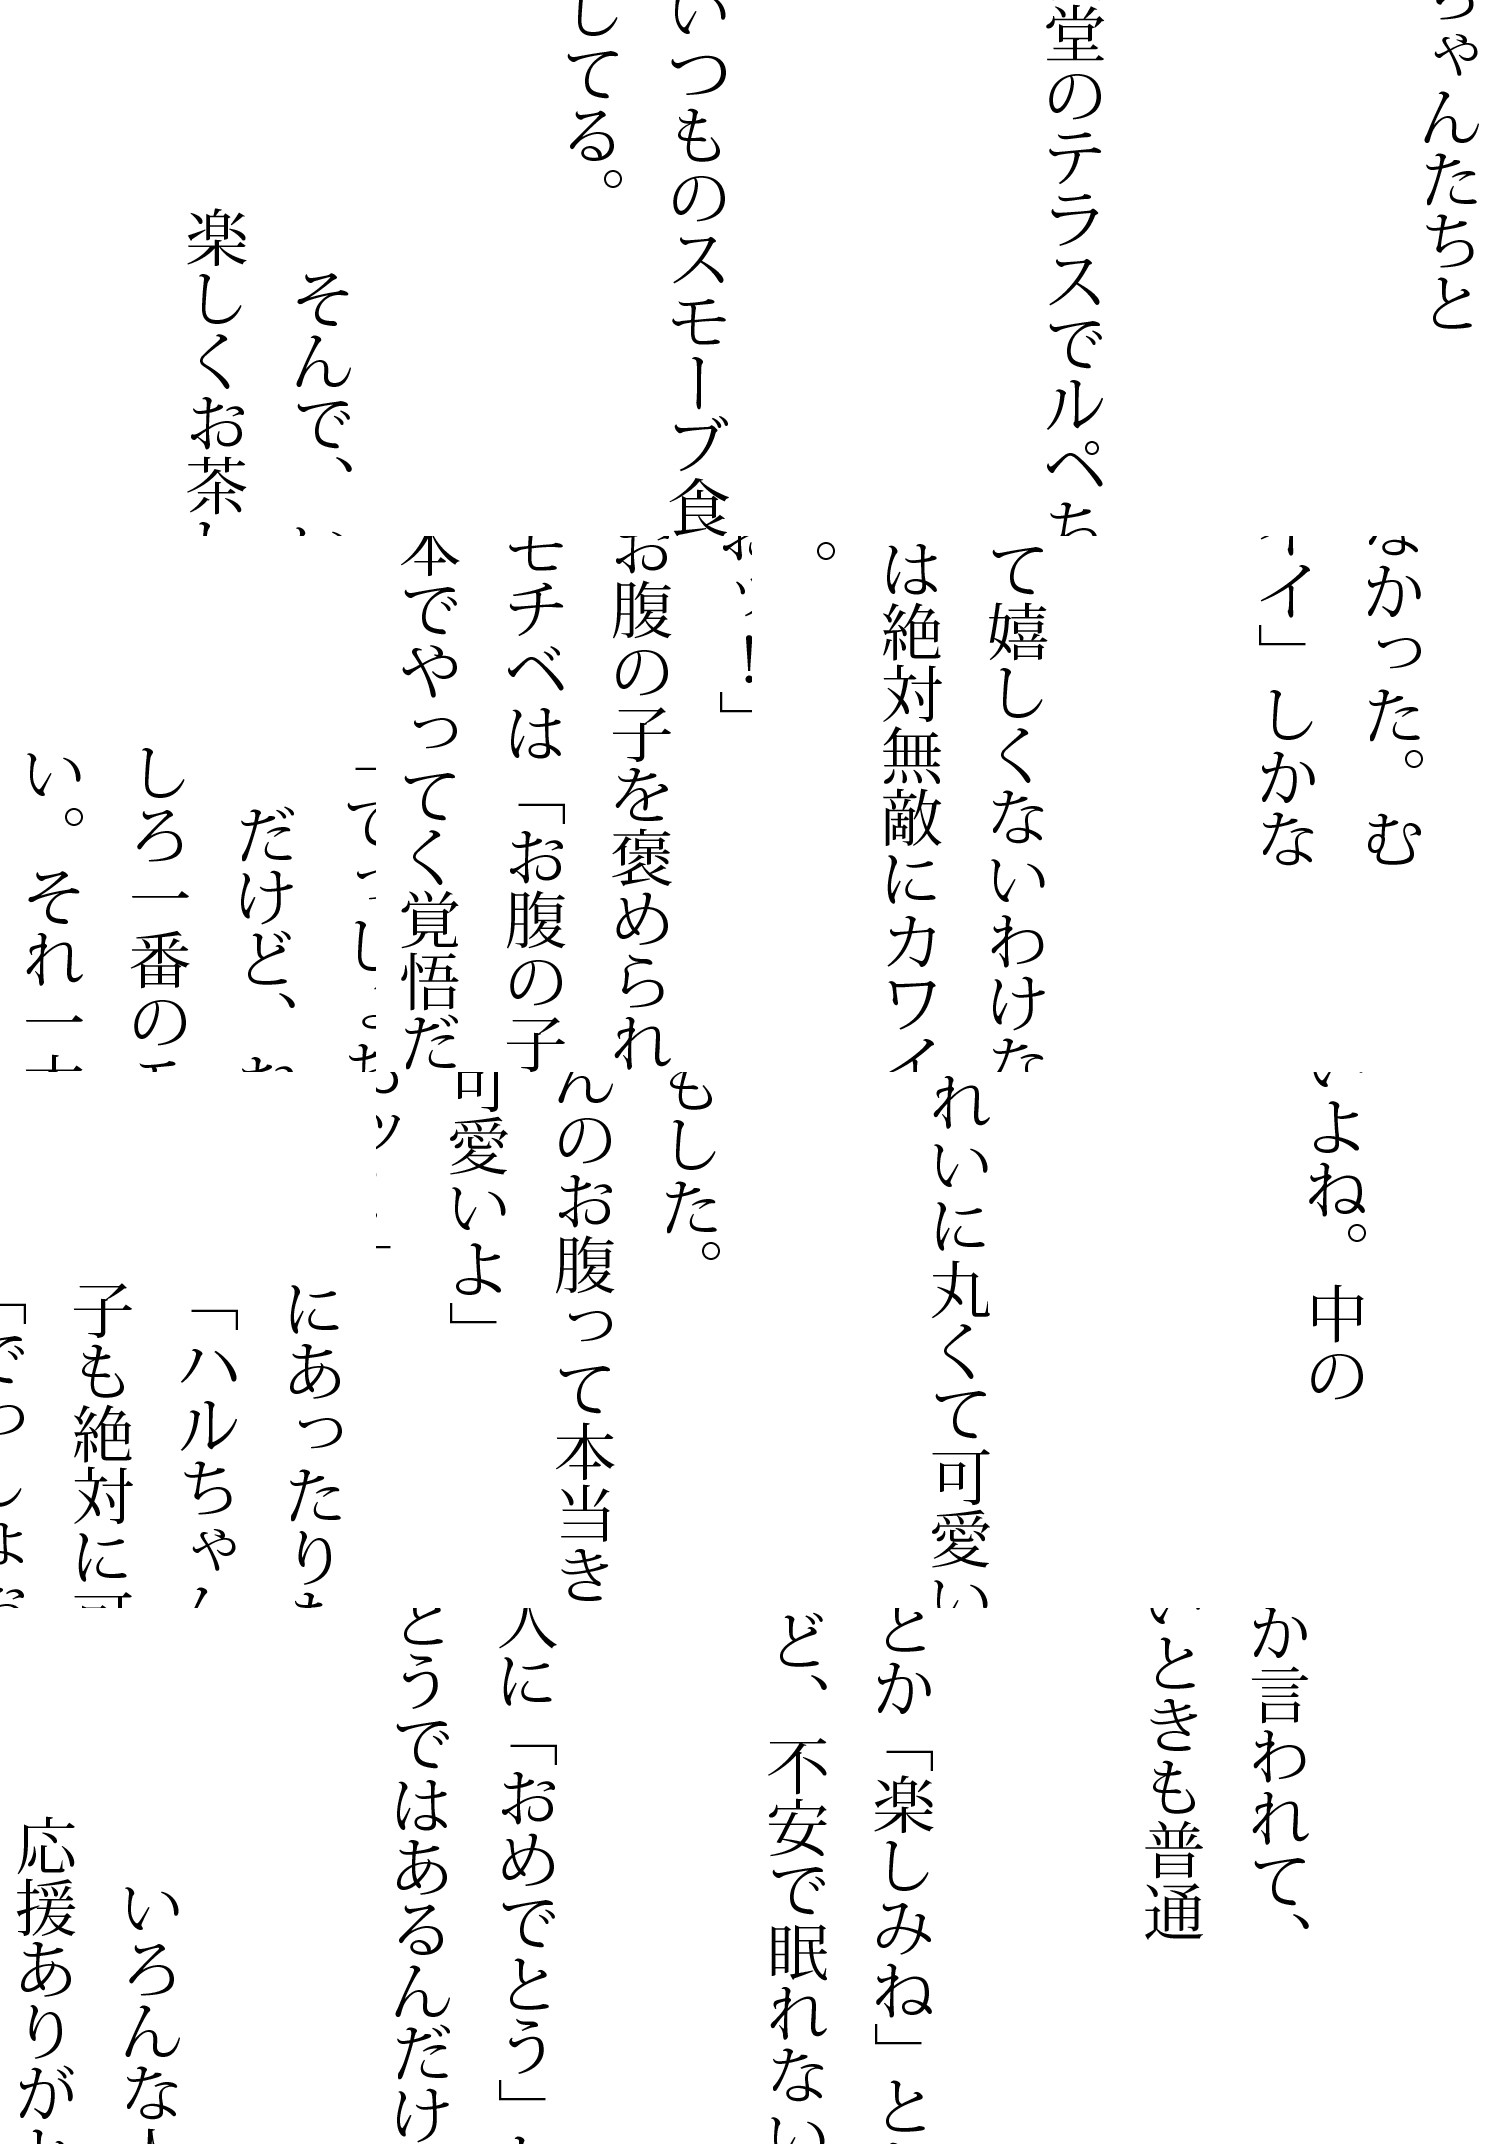 ちゃんたちと
堂のテラスでルペち
いつものスモーブ食
してる。
そんで、
楽しくお茶し
なかった。む
イ」しかな
て嬉しくないわけな
は絶対無敵にカワイ
。
ッ!」
お腹の子を褒められ
モチベは「お腹の子
本でやってく覚悟だ
だけど、お
しろ一番の
い。それ一本
いよね。中の
れいに丸くて可愛い
もした。
んのお腹って本当き
可愛いよ」
にあったりも
「ハルちゃん
子も絶対に可
「でっしょお
か言われて、
いときも普通
とか「楽しみね」と
ど、不安で眠れない
人に「おめでとう」
とうではあるんだけ
いろんな人
応援ありがと